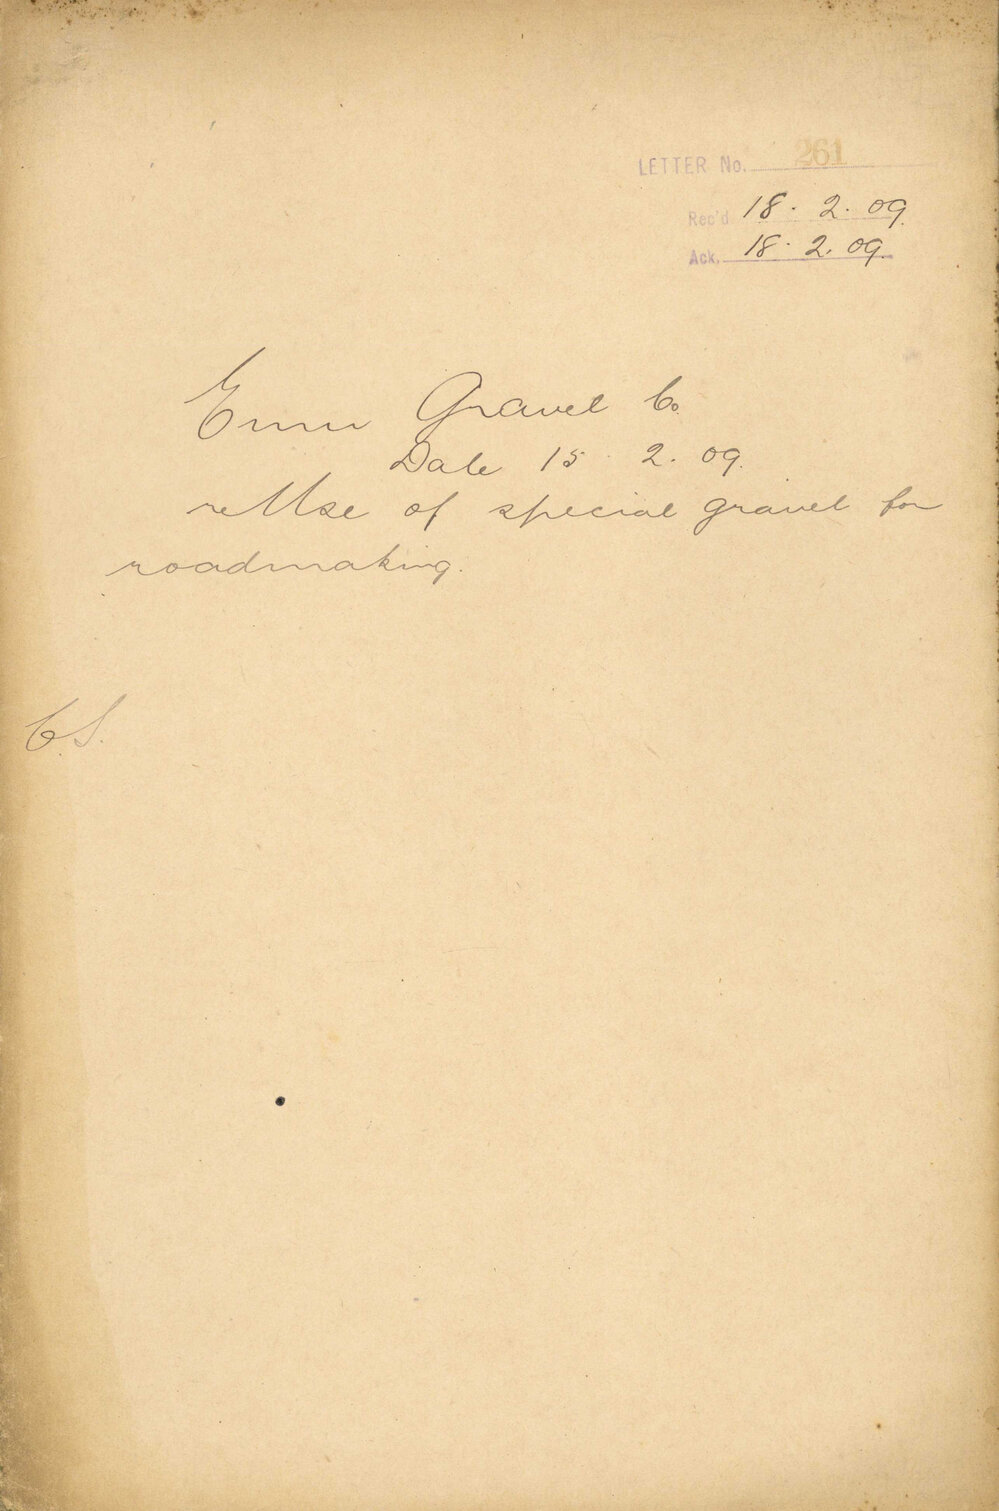 LETTER No. 261
Rec'd 18. 2. 09.
Ack. 18. 2. 09.
Emu Gravel Co.
Date 15. 2. 09.
re Use of special gravel for
roadmaking.
C.S.